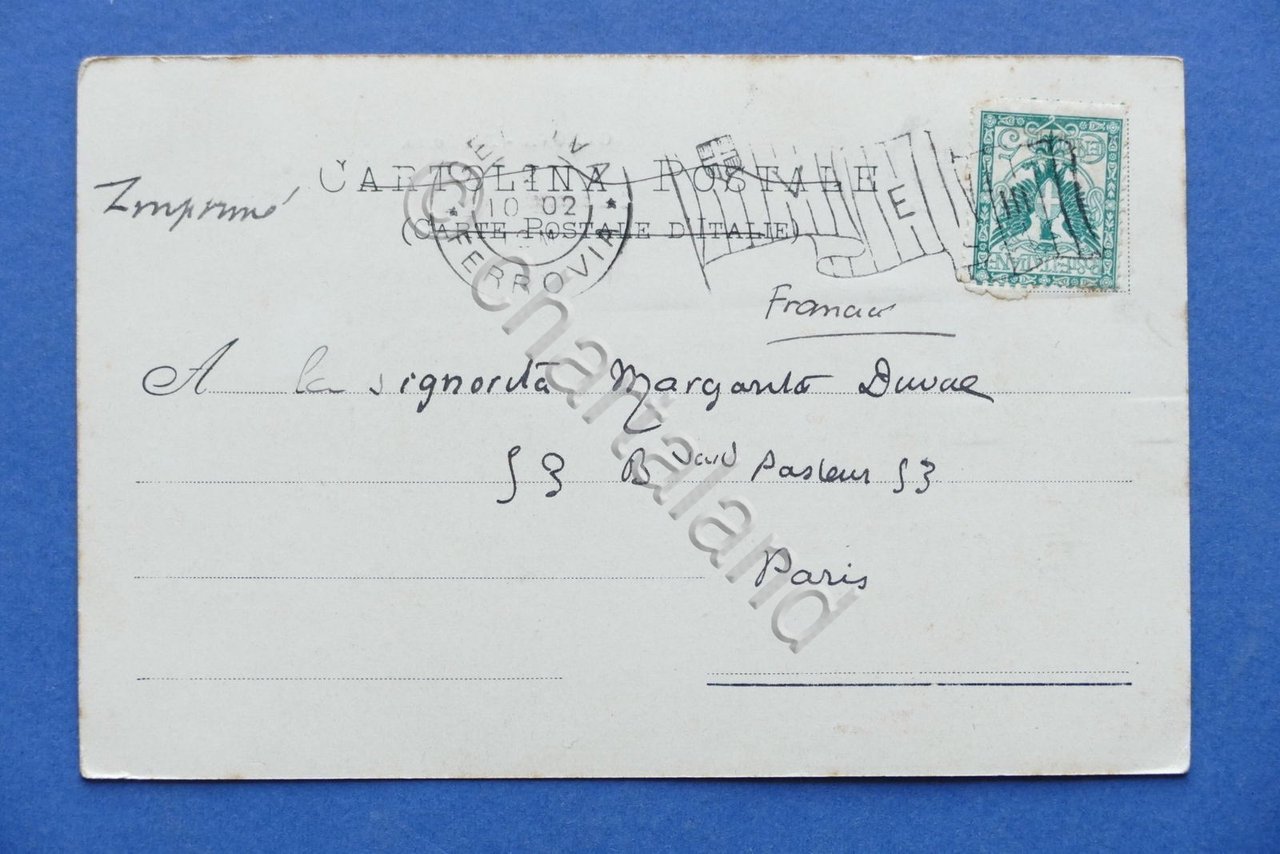 CARTOLINA POSTALE
(CARTE POSTALE D'ITALIE)
Imprimé
10 02
FERROVIA
E
Francia
A la signorita Margarita Duval
53 Bvard Pasteur 53
Paris
© chartaland